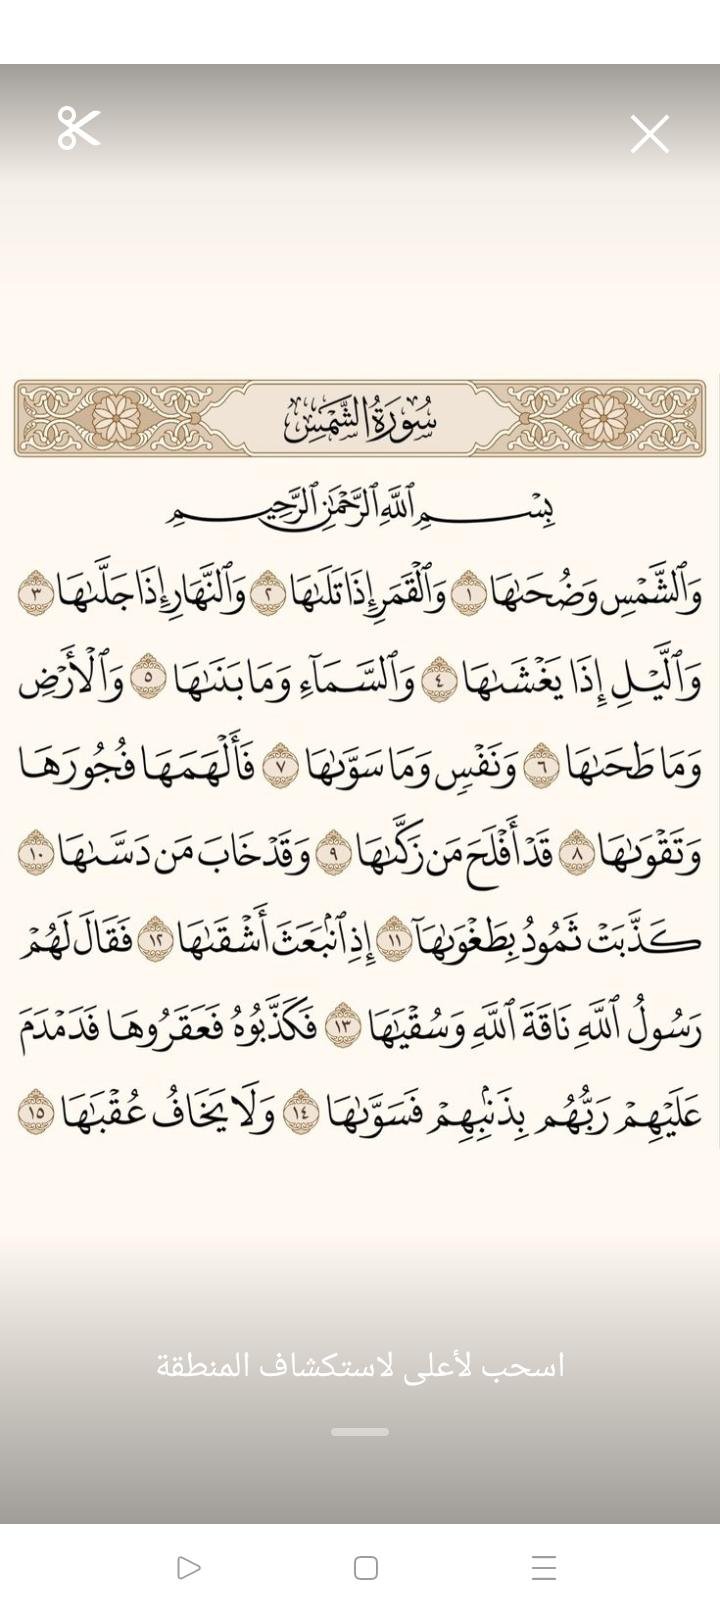 سُورَةُ الشَّمْسِ
بِسْمِ ٱللَّهِ ٱلرَّحْمَٰنِ ٱلرَّحِيمِ
وَٱلشَّمْسِ وَضُحَىٰهَا ١ وَٱلْقَمَرِ إِذَا تَلَىٰهَا ٢ وَٱلنَّهَارِ إِذَا جَلَّىٰهَا ٣
وَٱلَّيْلِ إِذَا يَغْشَىٰهَا ٤ وَٱلسَّمَآءِ وَمَا بَنَىٰهَا ٥ وَٱلْأَرْضِ
وَمَا طَحَىٰهَا ٦ وَنَفْسٍ وَمَا سَوَّىٰهَا ٧ فَأَلْهَمَهَا فُجُورَهَا
وَتَقْوَىٰهَا ٨ قَدْ أَفْلَحَ مَن زَكَّىٰهَا ٩ وَقَدْ خَابَ مَن دَسَّىٰهَا ١٠
كَذَّبَتْ ثَمُودُ بِطَغْوَىٰهَآ ١١ إِذِ ٱنۢبَعَثَ أَشْقَىٰهَا ١٢ فَقَالَ لَهُمْ
رَسُولُ ٱللَّهِ نَاقَةَ ٱللَّهِ وَسُقْيَٰهَا ١٣ فَكَذَّبُوهُ فَعَقَرُوهَا فَدَمْدَمَ
عَلَيْهِمْ رَبُّهُم بِذَنۢبِهِمْ فَسَوَّىٰهَا ١٤ وَلَا يَخَافُ عُقْبَٰهَا ١٥
اسحب لأعلى لاستكشاف المنطقة